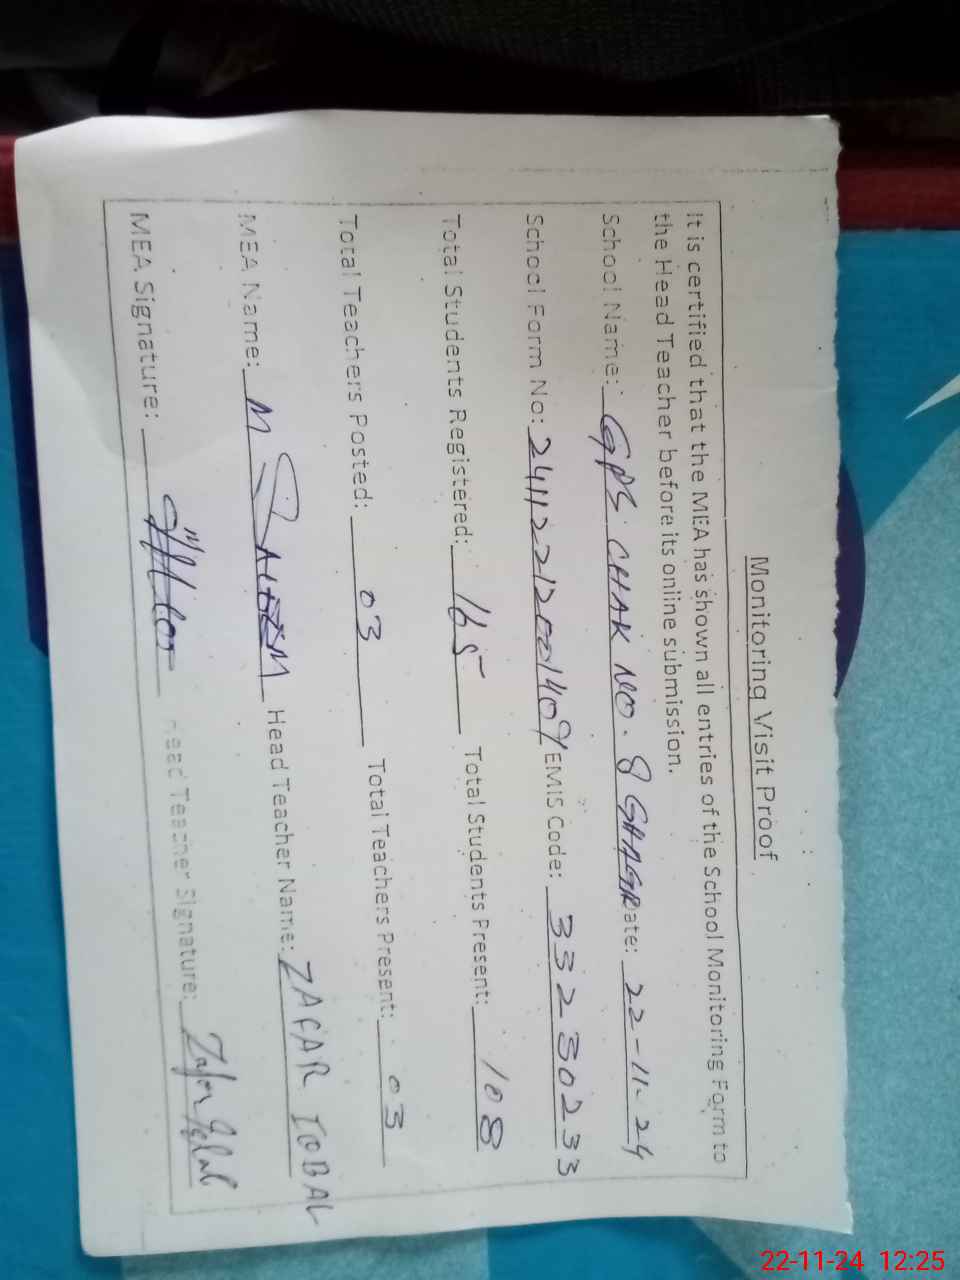 Monitoring Visit Proof
It is certified that the MEA has shown all entries of the School Monitoring Form to
the Head Teacher before its online submission.
School Name: GPS CHAK NO. 8 GHAGR ate: 22-11-24
School Form No: EMIS Code: 33230233
Total Students Registered: 165 Total Students Present: 108
Total Teachers Posted: 03 Total Teachers Present: 03
MEA Name: M SALEEM Head Teacher Name: ZAFAR IQBAL
MEA Signature: Head Teacher Signature: Zafar Iqbal
22-11-24 12:25